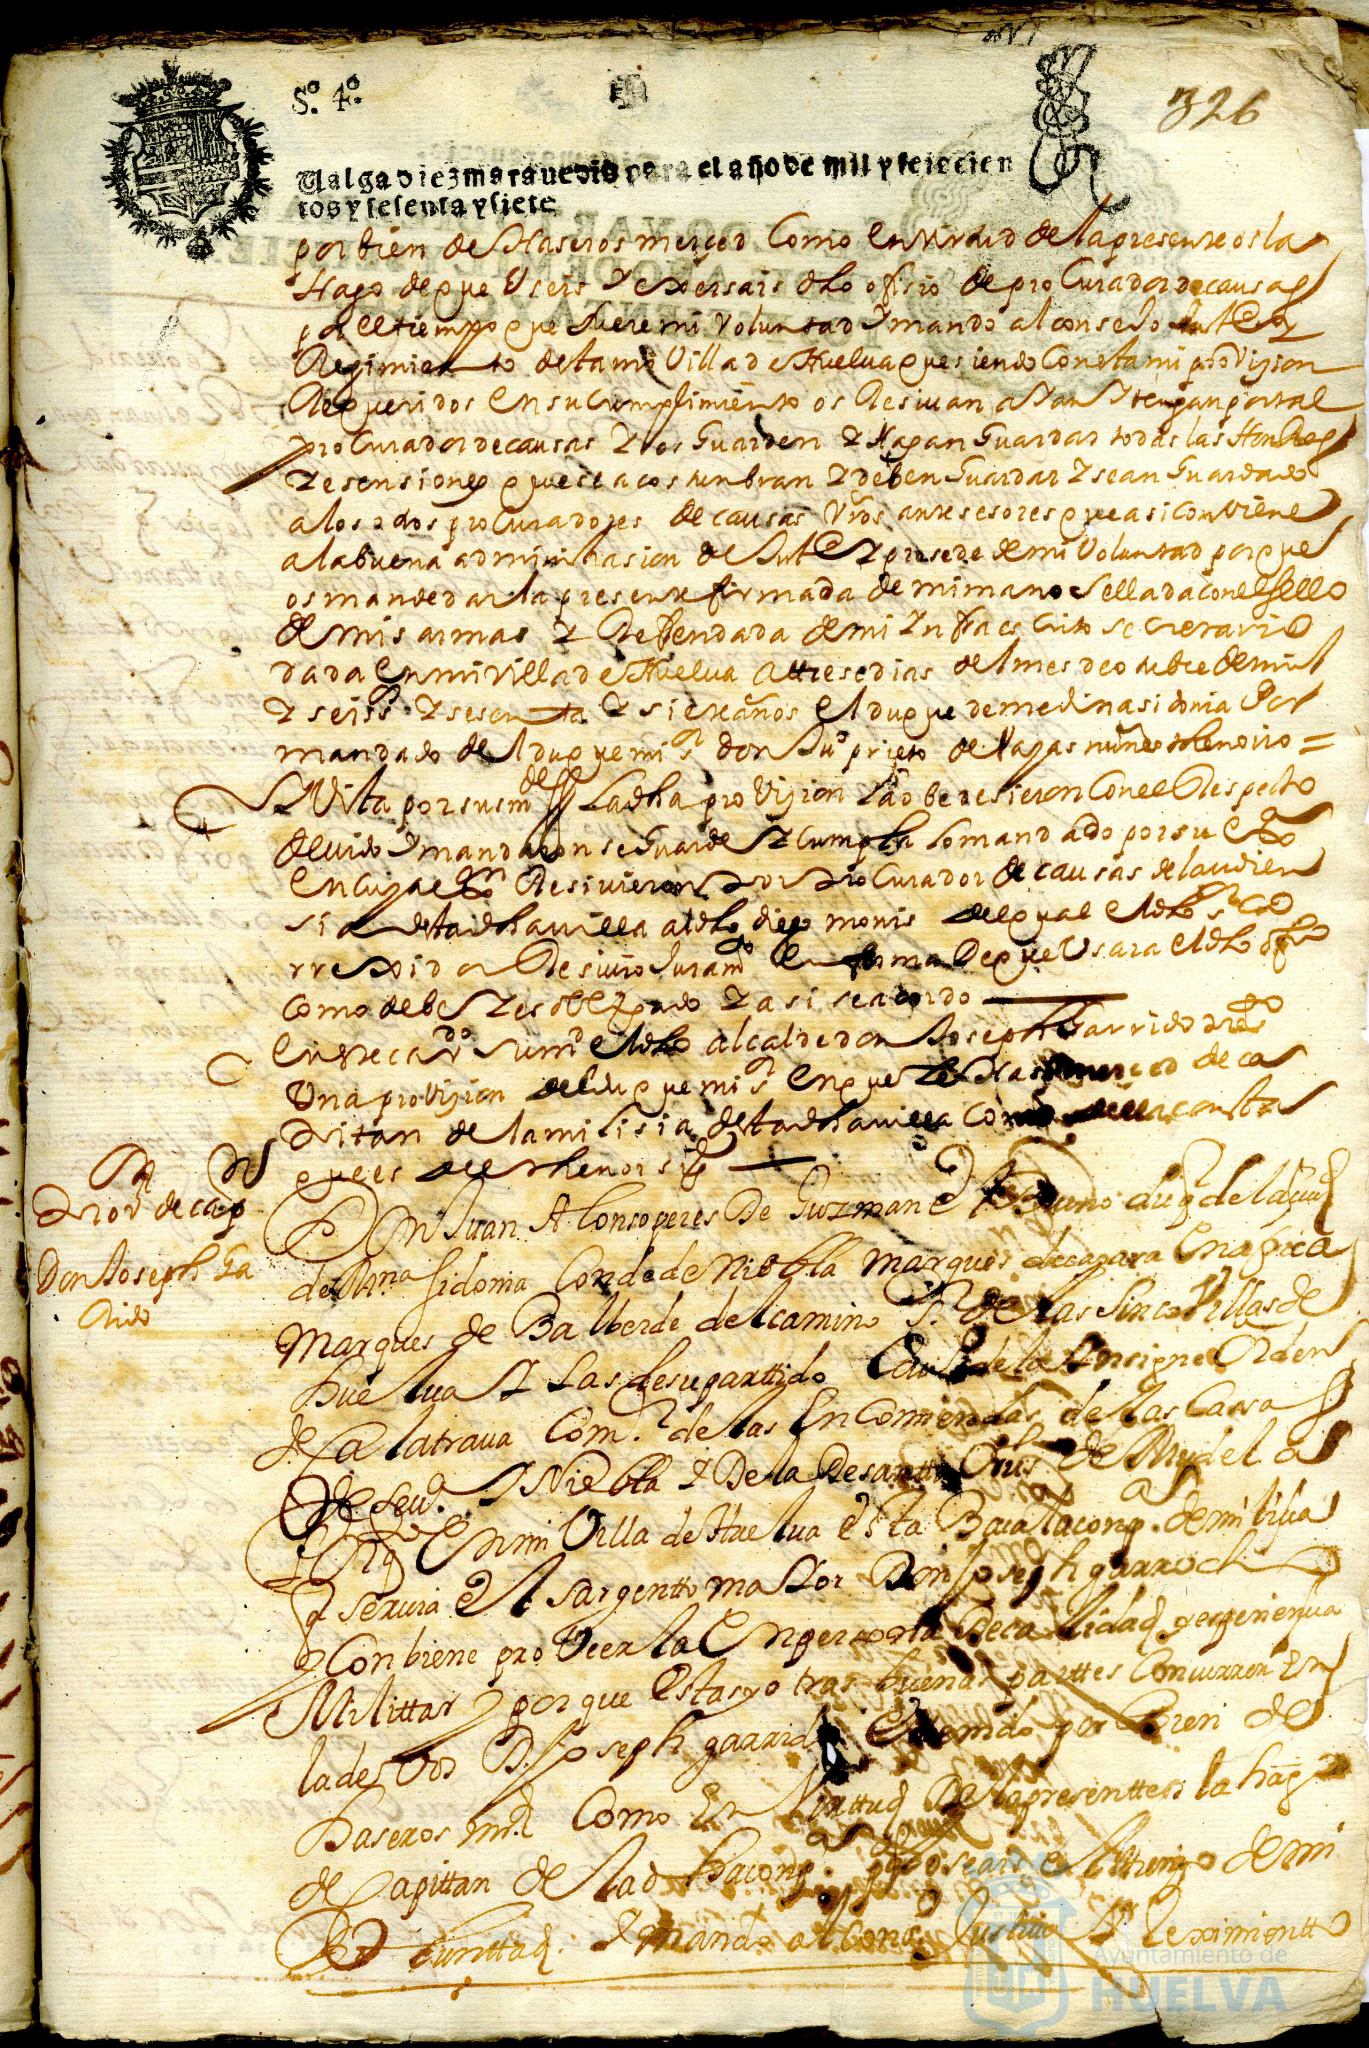 Sº. 4º.
326
Valga diez maravedis para el año de mil y seiscien
tos y sesenta y siete
por bien de Haseros merced Como en virtud de la presente os la
Hago de que Useis Y exersais dho ofisio de proCurador de causas
por el tiempo que fuere mi Voluntad Y mando al consejo Just^a y
Regimiento desta mi Villa de Huelva que siendo Con esta mi proVision
Requeridos en su Cumplimiento os Resivan aian Y tengan por tal
proCurador de causas Y os Guarden Y Hagan Guardar todas las Honrras
Y esensiones que se acostunbran Y deben Guardar Y sean Guardado
a los dos proCuradores de causas Vros antesesores que asi conViene
a la buena administrasion de Just^a Y prosede de mi Voluntad porque
os mande dar la presente firmada de mi mano Sellada con el sello
de mis armas Y Refrendada de mi Ynfraescrito secretario
dada en mi villa de Huelva a trese dias del mes de otubre de mil
Y seiss^os Y sesenta Y siete años el duque de medina sidonia Por
mandado del duque mi s^r don Ju^o prieto de
Vista por sus m^des La dha proVision La obedesieron Con el Respecto
devido Y mandaron se Guarde Y Cumpla lo mandado por su Ex^a
En cuya ex^on Resivieron Por ProCurador de causas de la audien
sia desta dha villa al dho diego monis del qual el dho s^r Co
rrexidor Resivio Juram^to En forma De que Usara el dho ofi^o
como debe Y es obligado Y asi se acordo
En este cav^do su m^d el dho alcalde don Joseph Garrido pres^to
Una proVision del duque mi s^r en que le Hase merced de ca
Pitan de la milisia desta dha villa Como della consta
que es del thenor sig^te
P^on
Prior de cap
Don Joseph Ga
rrido
Don Juan Alonso peres De Guzman el Bueno duq de la Ciud
de M^na Sidonia Conde de Niebla Marques de cazaza En africa
Marques de Balberde del camino S^r de las Sinco Villas de
Huelva Y Las de su parttido Cav^o de la Insigne Orden
de Calatrava Com^r de las EnComiendas de Las Cassas
De Sev^a. Y Niebla Y De la De santta Crus De Mudela
Por q^e En mi Villa de Huelva esta Baca la comp^a de milicia
q servia el sargentto maYor Don Joseph garrocho
y Conbiene proVeerla En persona De calidad y experiencia
Milittar y porque Estas y otras buenas parttes Concurren En
la de Vos D. Joseph garrido E tenido por Bien de
Haseros m^d Como En Virttud De la presentte os la hago
de Capittan de la dha comp^a por el tiempo de mi
Boluntad. Y Mando al Cons^o Justicia Y Reximientto
Ayuntamiento de
HUELVA